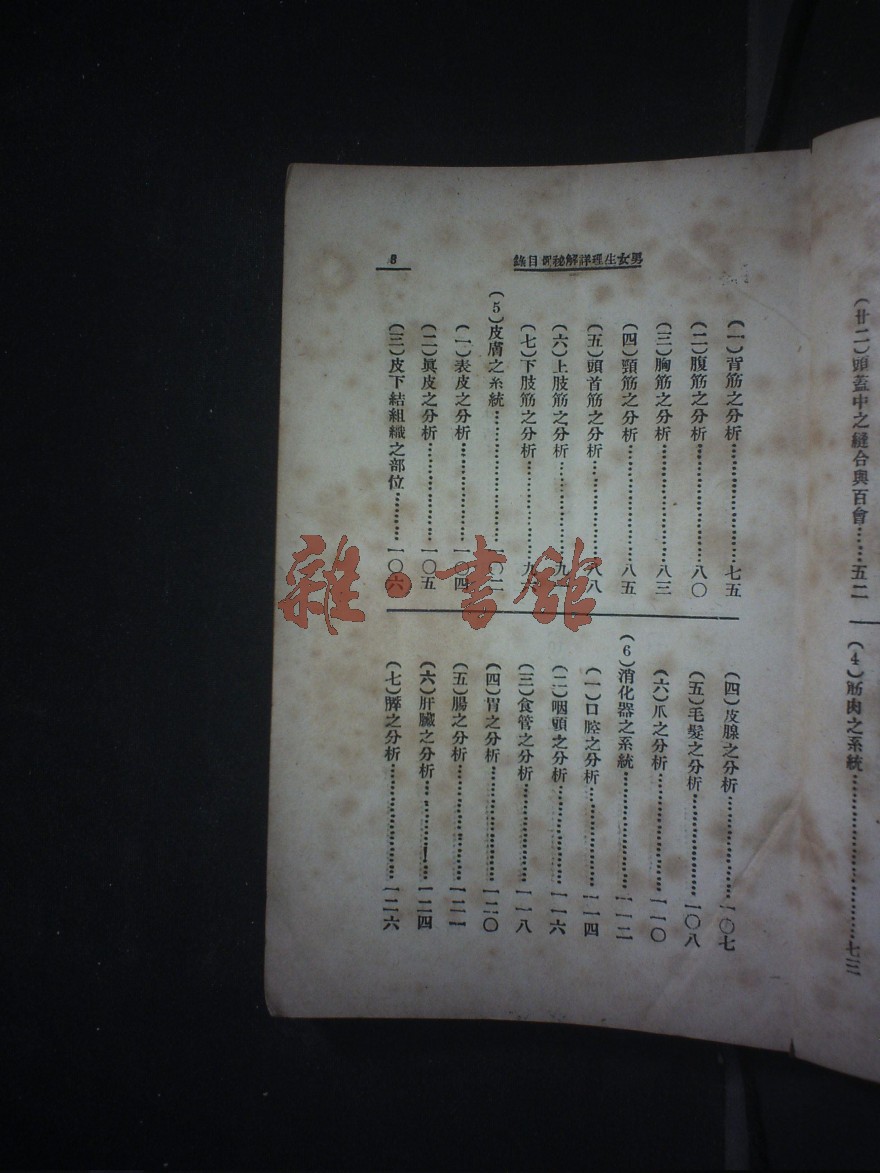 (廿二)頭蓋中之縫合與百會……五二
(4)筋肉之系統…………………七三
男女生理詳解秘 目錄
8
(一)背筋之分析…………七五
(二)腹筋之分析…………八〇
(三)胸筋之分析…………八三
(四)頸筋之分析…………八五
(五)頭首筋之分析…………八八
(六)上肢筋之分析…………九
(七)下肢筋之分析…………九
(5)皮膚之系統……………一〇二
(一)表皮之分析…………一〇四
(二)眞皮之分析…………一〇五
(三)皮下結組織之部位……一〇六
(四)皮腺之分析…………一〇七
(五)毛髮之分析…………一〇八
(六)爪之分析……………一一〇
(6)消化器之系統…………一一二
(一)口腔之分析…………一一四
(二)咽頭之分析…………一一六
(三)食管之分析…………一一八
(四)胃之分析……………一二〇
(五)腸之分析……………一二一
(六)肝臟之分析…………一二四
(七)脾之分析……………一二六
雜·書館